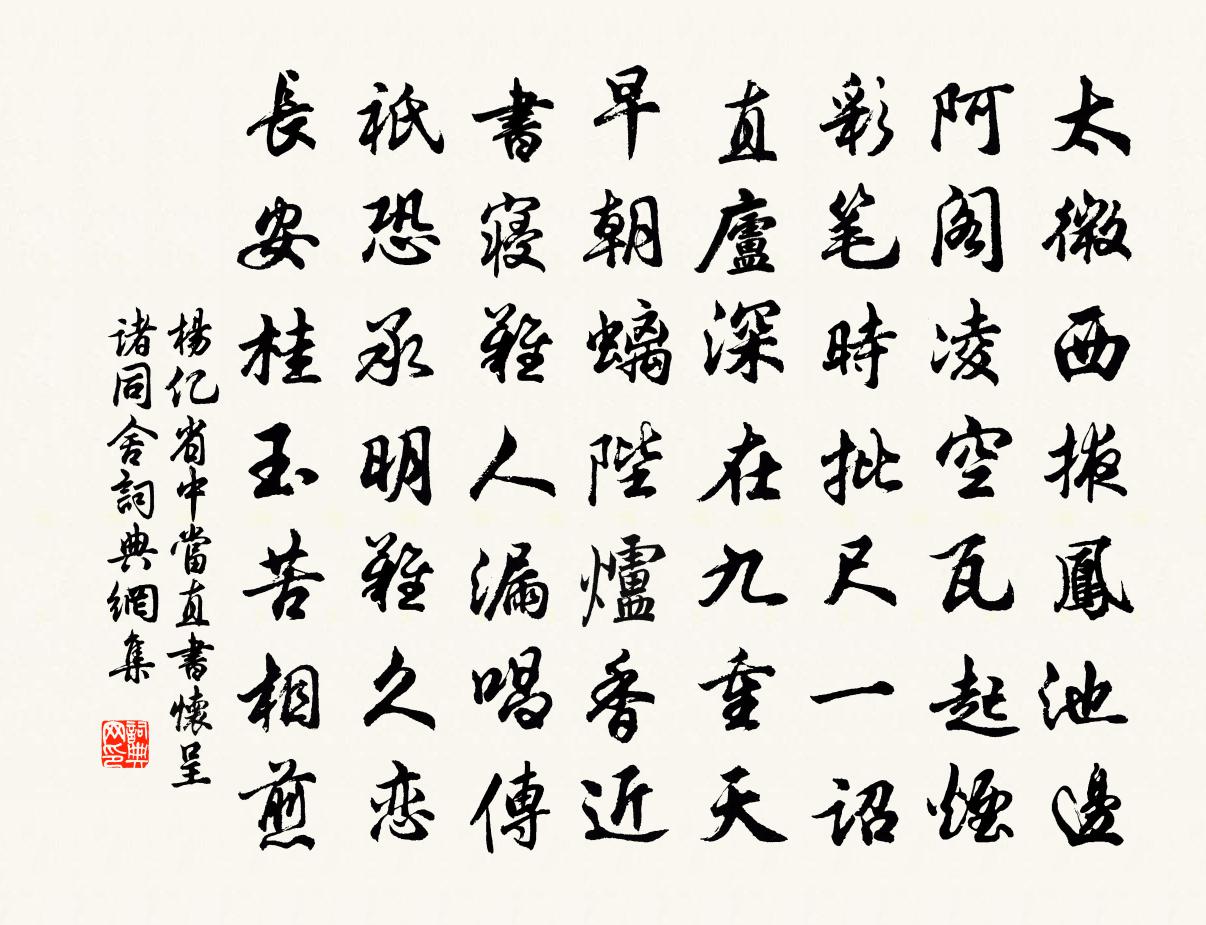 太微西掖鳳池邊
阿阁凌空瓦起煙
彩笔時批尺一詔
直廬深在九重天
早朝螭陛爐香近
書寝難人漏唱傳
祇恐承明難久恋
長安桂玉苦相煎
楊亿省中當直書懷呈
诸同舍詞典網集
詞典网印